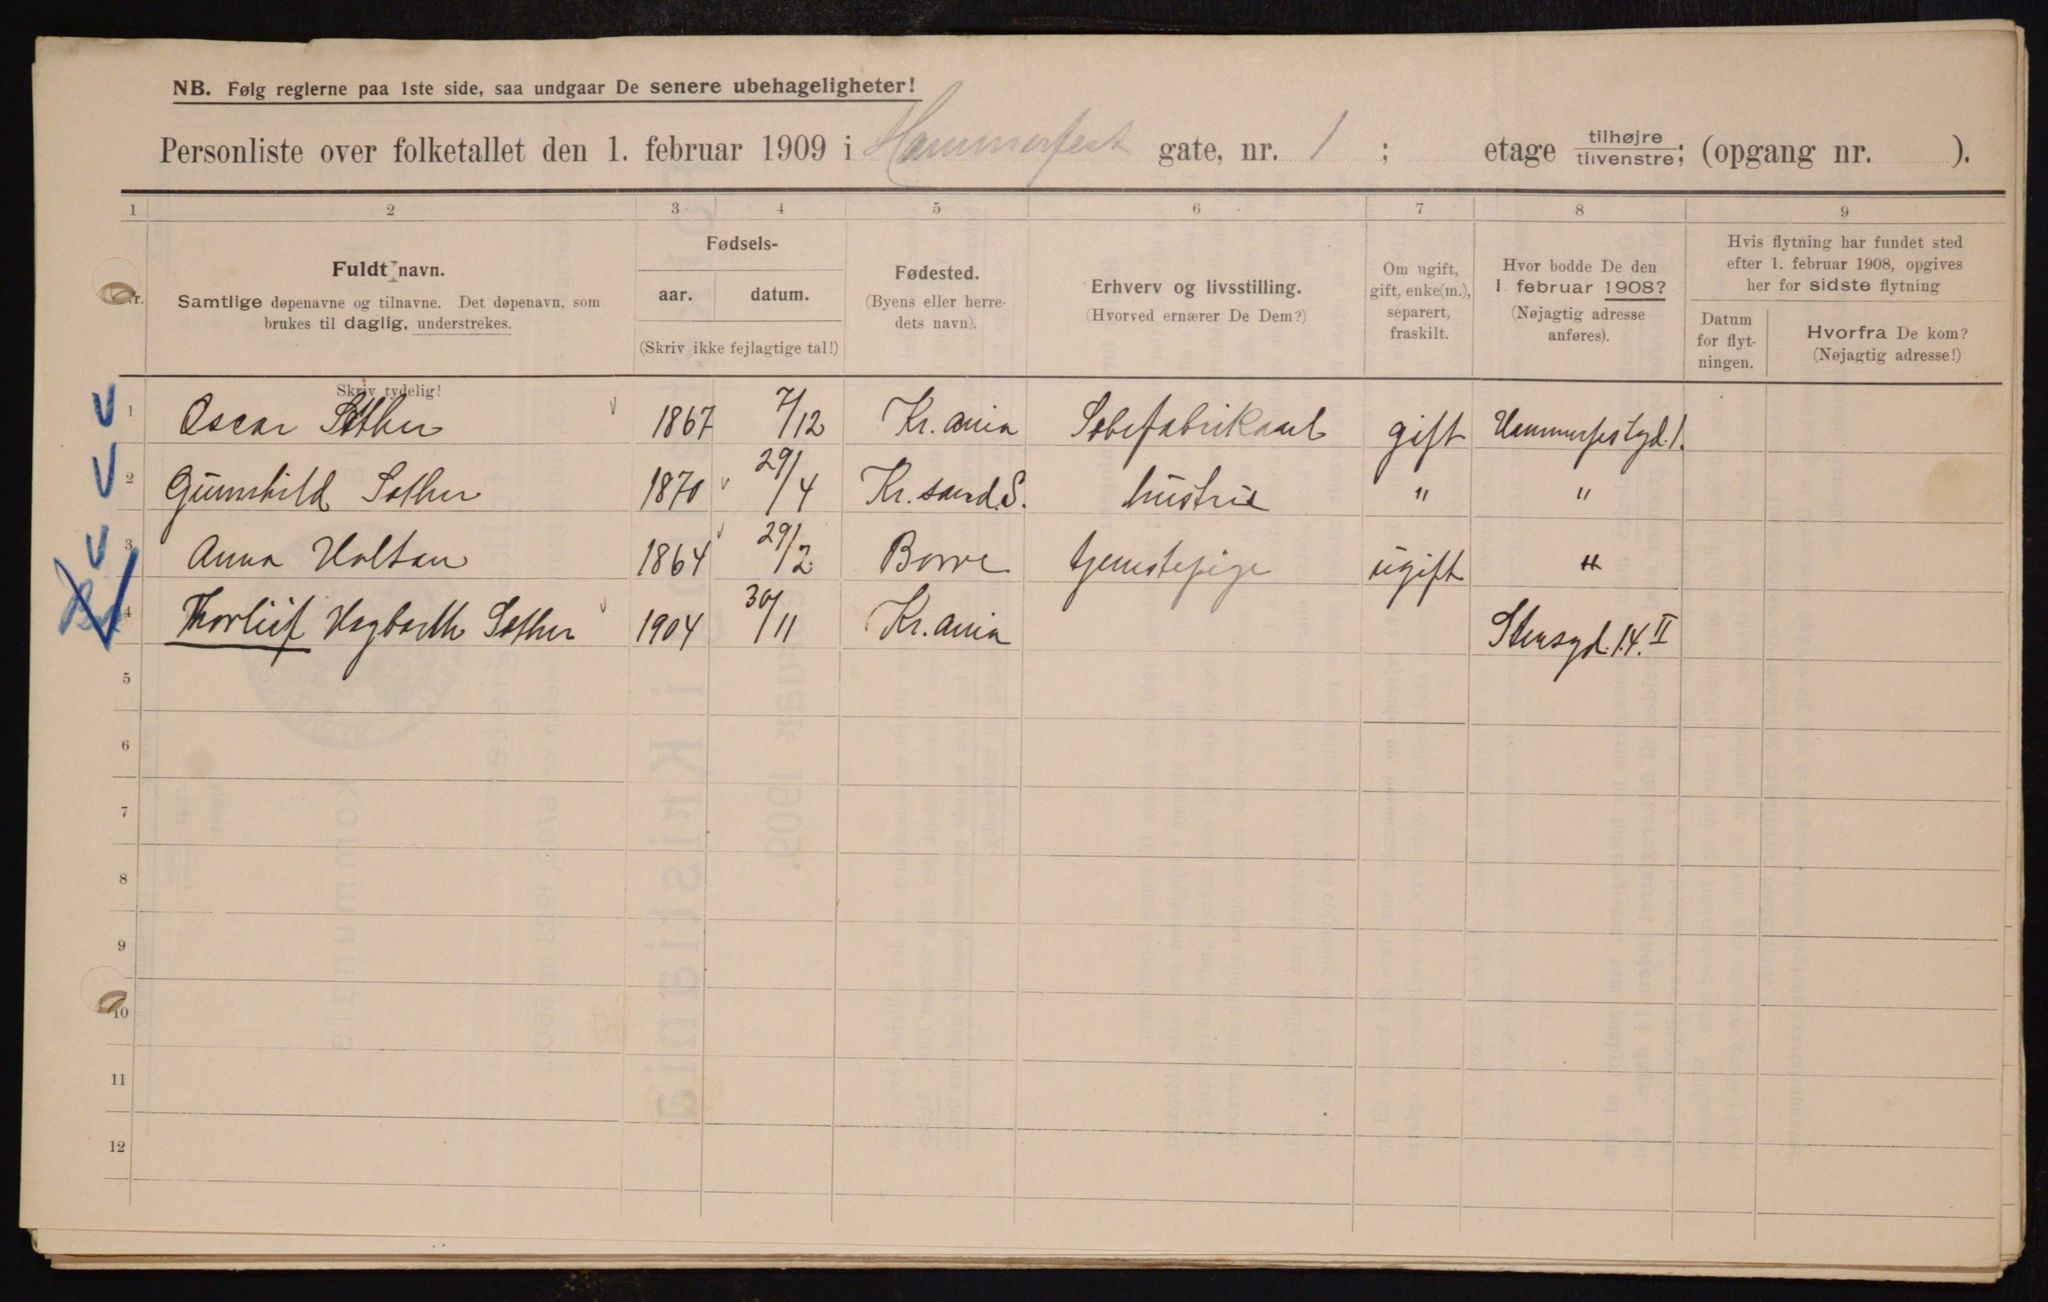 NB. Følg reglerne paa 1ste side, saa undgaar De senere ubehageligheter!
Personliste over folketallet den 1. februar 1909 i Hammerfest gate, nr. 1 ; etage tilhøjre tilvenstre; (opgang nr. ).
1 2 3 4 5 6 7 8 9
Nr.
Fuldt navn.
Samtlige døpenavne og tilnavne. Det døpenavn, som
brukes til daglig, understrekes.
Skriv tydelig!
Fødsels-
aar. datum.
(Skriv ikke fejlagtige tal!)
Fødested.
(Byens eller herre-
dets navn).
Erhverv og livsstilling.
(Hvorved ernærer De Dem?)
Om ugift,
gift, enke(m.),
separert,
fraskilt.
Hvor bodde De den
1 februar 1908?
(Nøjagtig adresse
anføres).
Hvis flytning har fundet sted
efter 1. februar 1908, opgives
her for sidste flytning
Datum
for flyt-
ningen.
Hvorfra De kom?
(Nøjagtig adresse!)
1 Oscar Sother 1867 7/12 Kr.ania gift Hammerfestgd. 1.
2 Gunhild Sother 1870 29/4 Kr.sand.S. hustru " "
3 Anna Holtan 1864 29/2 Borre tjenestepige ugift "
4 Thorleif Hagbarth Sother 1904 30/11 Kr.ania Stensgd. 14. II
5
6
7
8
9
10
11
12